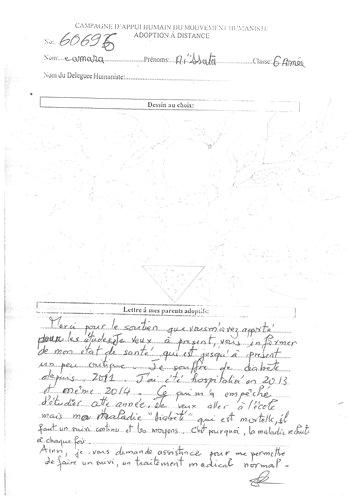 CAMPAGNE D'APPUI HUMAIN DU MOUVEMENT HUMANISTE
ADOPTION À DISTANCE
No: 60695
Nom: camara Prénoms: Aïssata Classe: 6 Année
Nom du Délégué Humaniste:
Dessin au choix:
Lettre à mes parents adoptifs:
Merci pour le soutien que vous m'avez apporté
pour les études. Je veux à présent, vous informer
de mon état de santé qui est jusqu'à présent
un peu critique. Je souffre de diabète
depuis 2011. J'ai été hospitalisé en 2013
et même 2014. Ce qui m'a empêché
d'étudier cette année. Je veux aller à l'école
mais ma maladie "diabète" qui est mortelle, il
faut un suivi continu et les moyens. C'est pourquoi, la maladie
à chaque fois.
Ainsi, je vous demande assistance pour me permettre
de faire un suivi, un traitement medical normal.